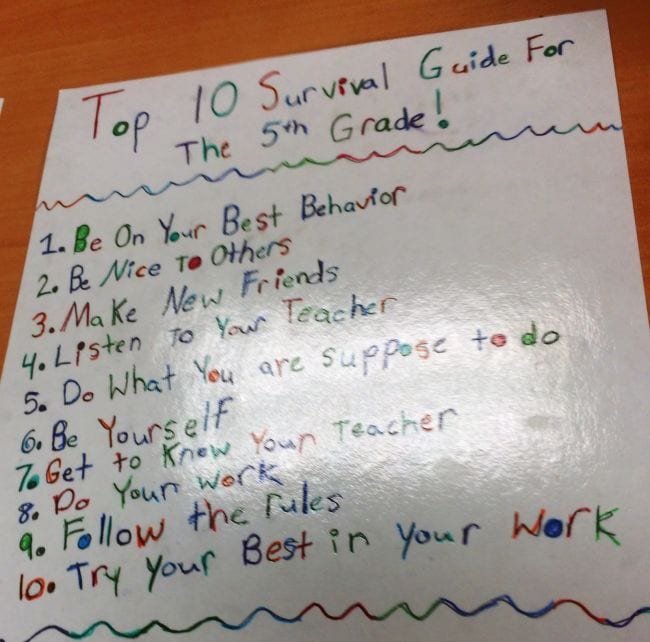 Top 10 Survival Guide For
The 5th Grade!
1. Be On Your Best Behavior
2. Be Nice To Others
3. Make New Friends
4. Listen To Your Teacher
5. Do What You are suppose to do
6. Be Yourself
7. Get to Know Your Teacher
8. Do Your Work
9. Follow the rules
10. Try Your Best in Your Work